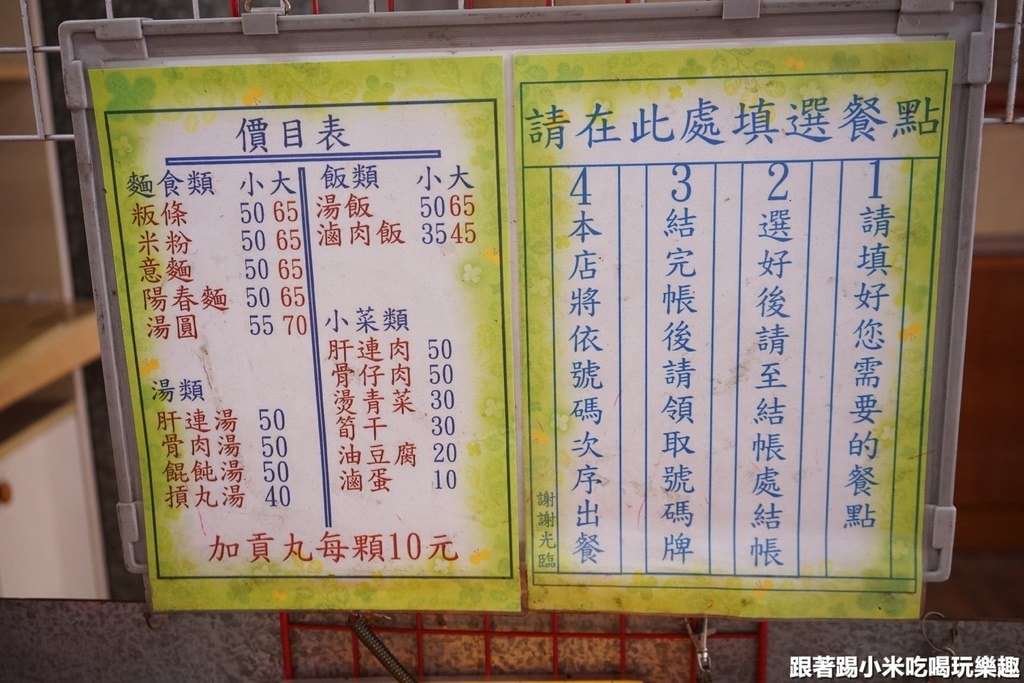 價目表
麵食類 小 大
粄條 50 65
米粉 50 65
意麵 50 65
陽春麵 50 65
湯圓 55 70
湯類
肝連湯 50
骨肉湯 50
餛飩湯 50
摃丸湯 40
飯類 小 大
湯飯 50 65
滷肉飯 35 45
小菜類
肝連肉 50
骨仔肉 50
燙青菜 30
筍干 30
油豆腐 20
滷蛋 10
加貢丸每顆10元
請在此處填選餐點
1請填好您需要的餐點
2選好後請至結帳處結帳
3結完帳後請領取號碼牌
4本店將依號碼次序出餐
謝謝光臨
跟著踢小米吃喝玩樂趣